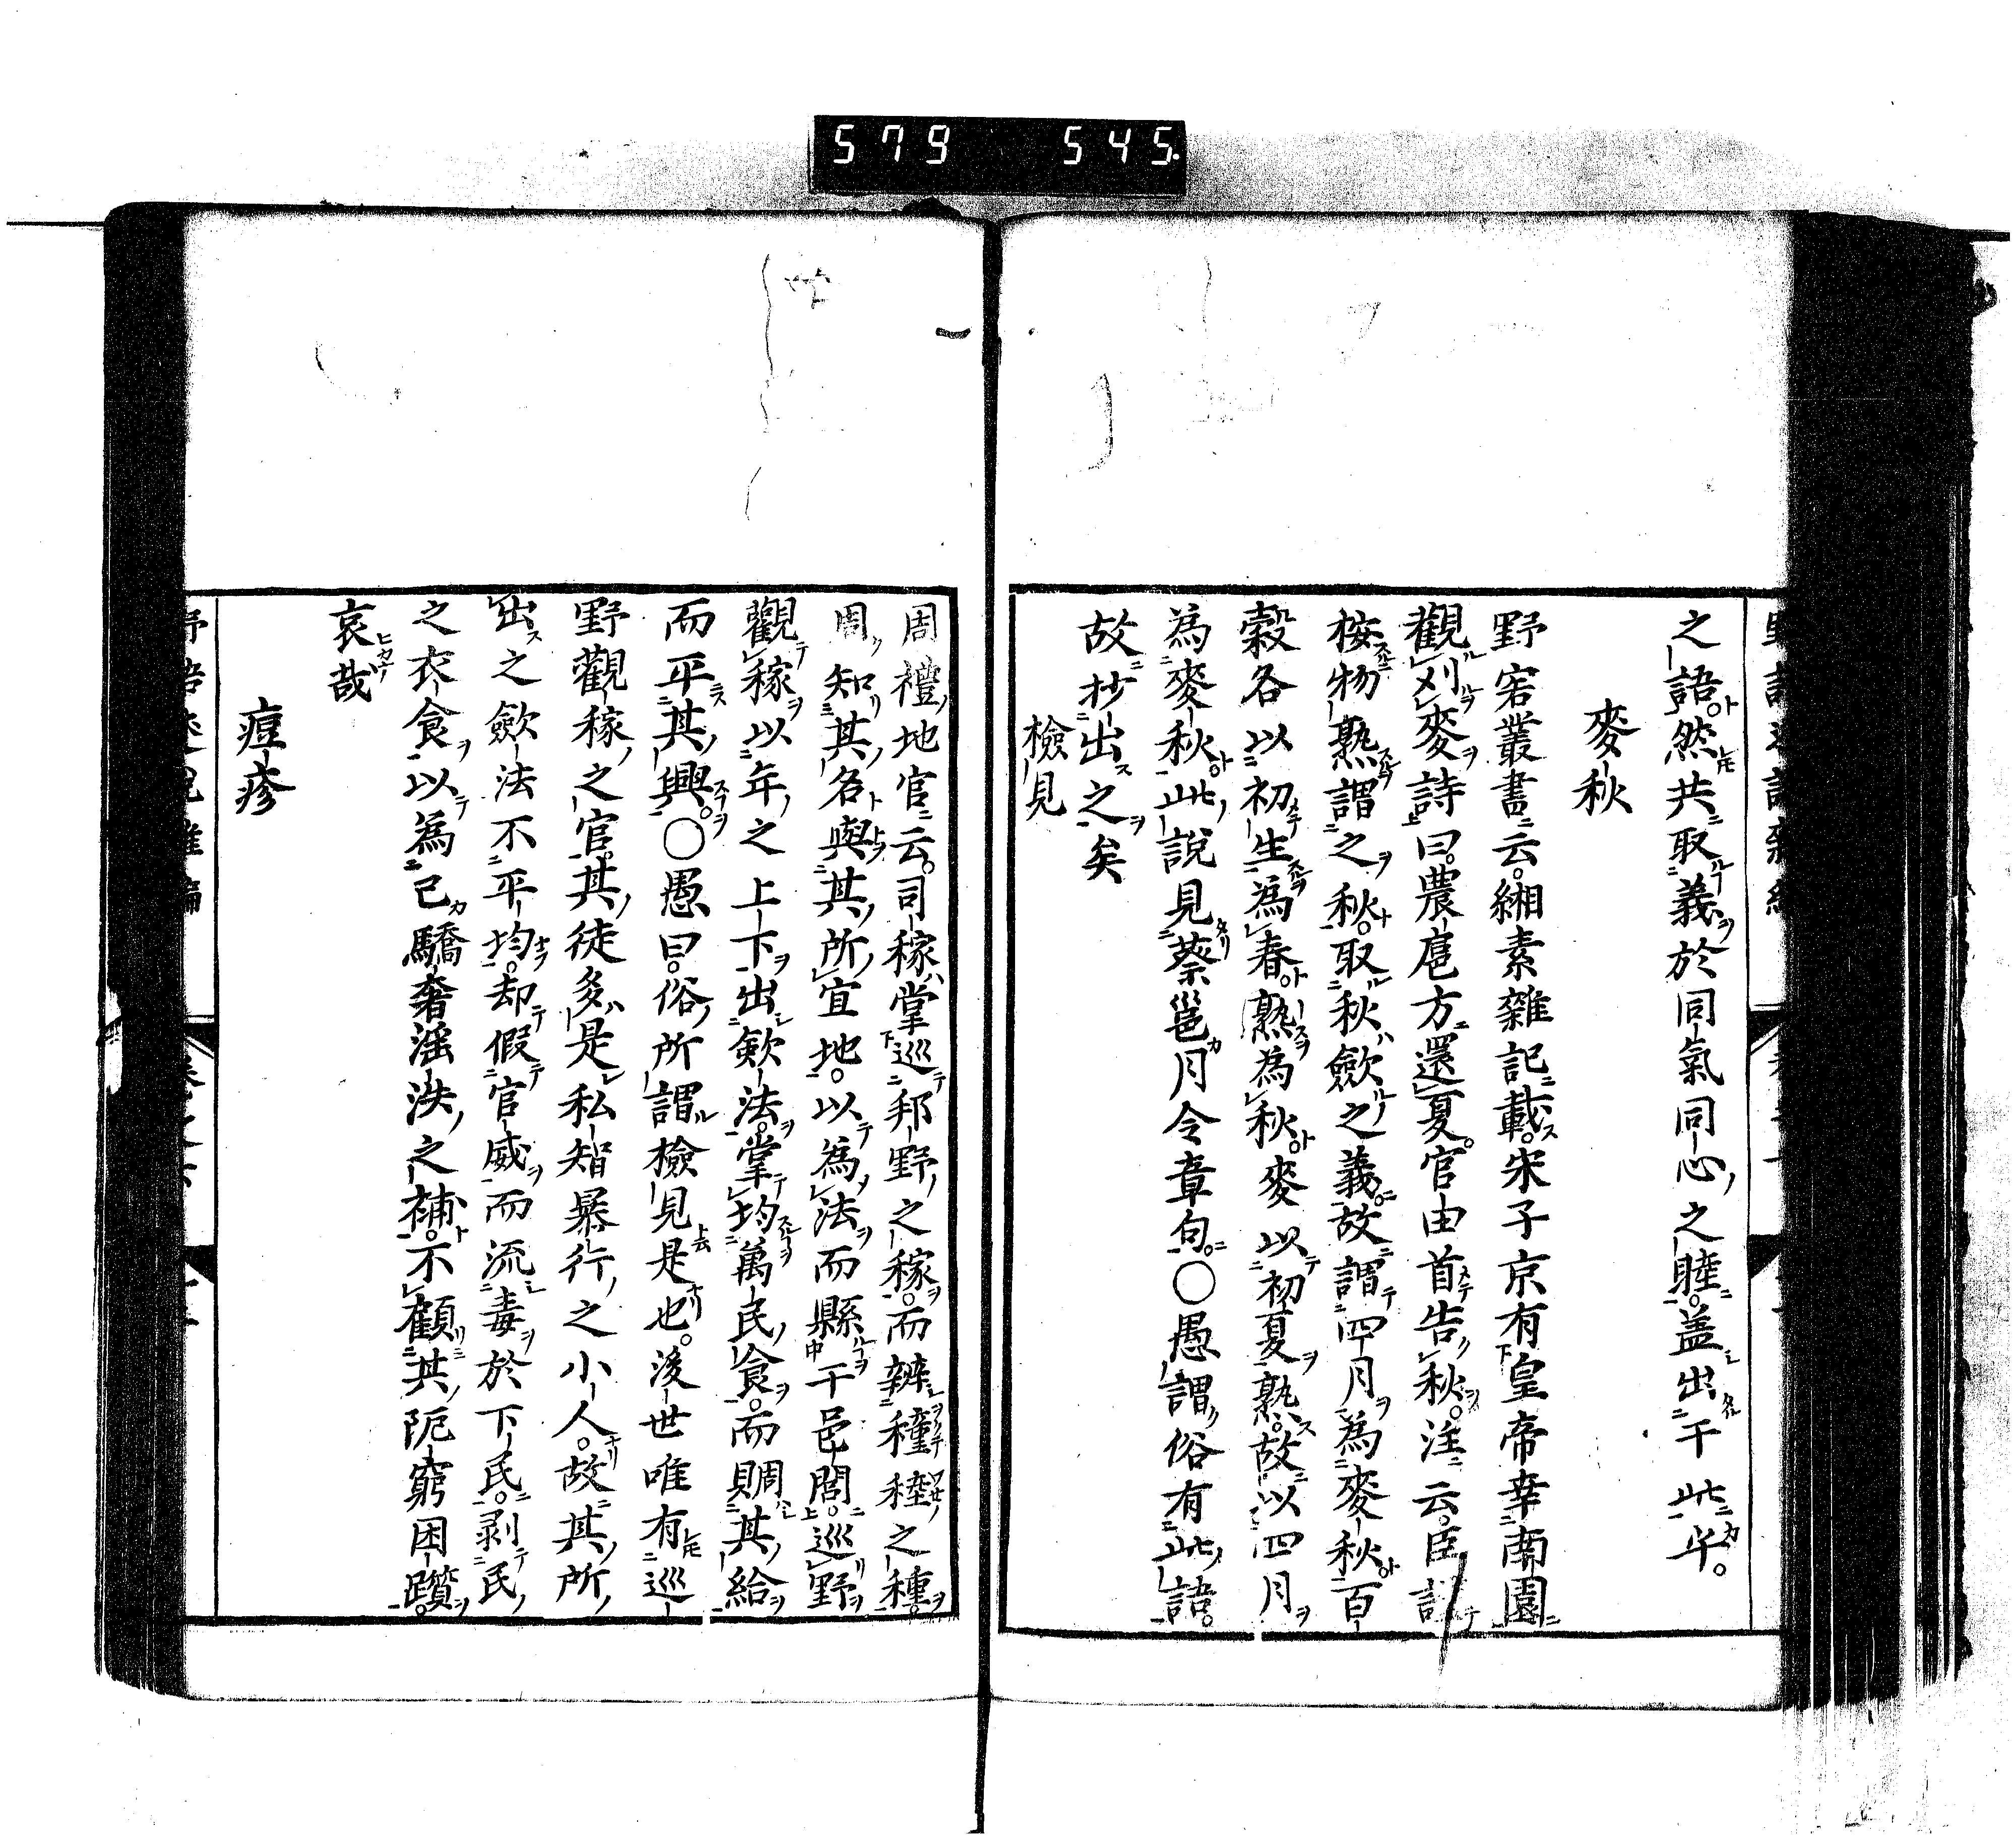 579 545.
之語然共取義於同氣同心之睦。盖出于此乎。
麥秋
野客叢書云。緗素雜記載。宋子京有皇帝幸南園
觀刈麥詩曰。農扈方還夏。官由首告秋。注云。臣謹
桉物熟謂之秋。取秋歛之義。故謂四月為麥秋百
穀各以初生為春。熟為秋。麥以初夏熟。故以四月
為麥秋。此說見蔡邕月令章句。〇愚謂俗有此諺。
故抄出之矣
檢見
周禮地官云。司稼掌巡邦野之稼。而辨穜稑之種。
周知其名與其所宜地。以為法而縣于邑閭。巡野
觀稼以年之上下出歛法。掌均萬民食。而賙其給
而平其興。〇愚曰。俗所謂檢見是也。後世唯有巡
野觀稼之官。其徒多是私智暴行之小人。故其所
出之歛法不平均。却假官威而流毒於下民。剥民
之衣食以為已驕奢滛泆之補。不顧其阨窮困躓。
哀哉
痘疹